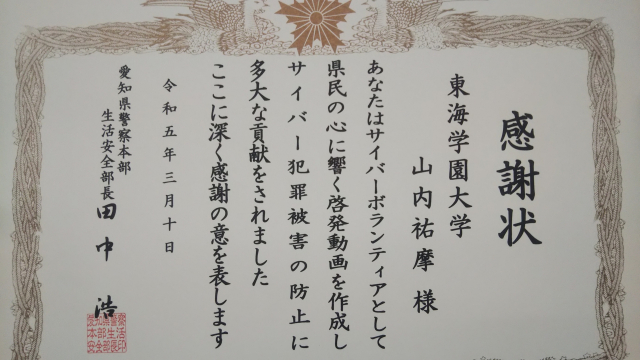 感謝状
東海学園大学
山内祐摩様
あなたはサイバーボランティアとして
県民の心に響く啓発動画を作成し
サイバー犯罪被害の防止に
多大な貢献をされました
ここに深く感謝の意を表します
令和五年三月十日
愛知県警察本部
生活安全部長
田中浩